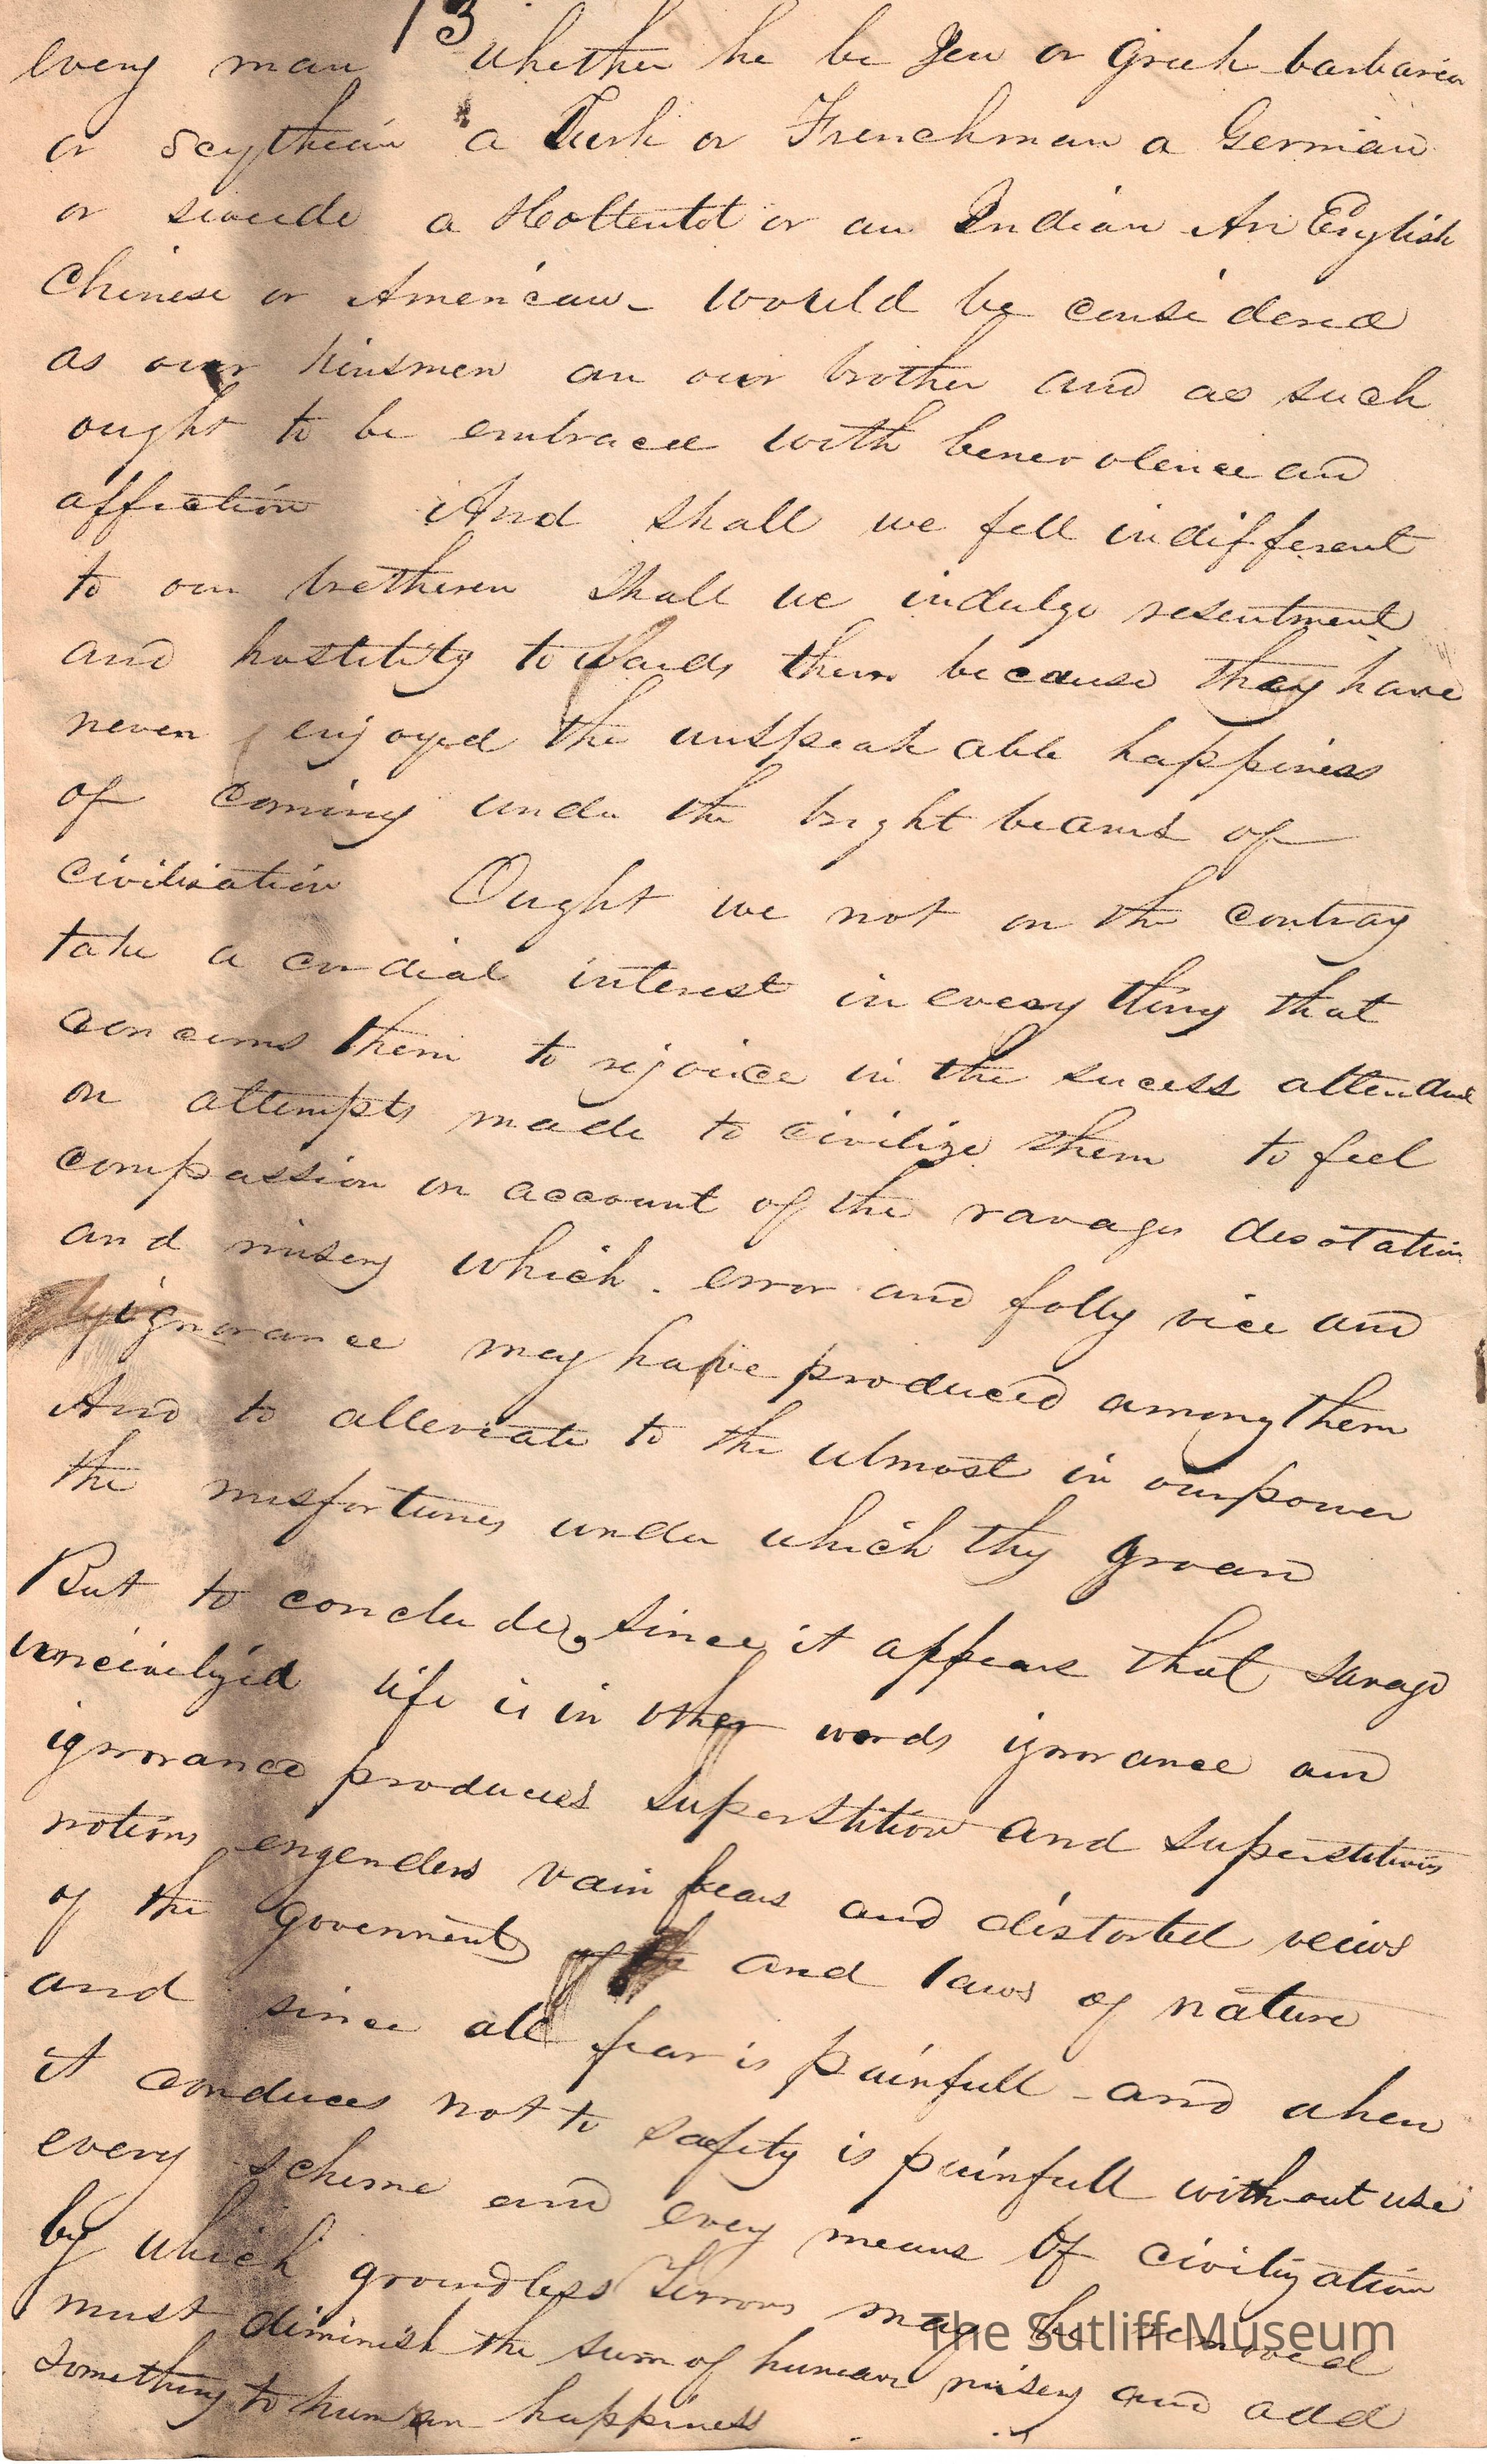 13
every man whether he be Jew or Greek barbarian
or Scythian a Turk or Frenchman a German
or swede a Hottentot or an Indian An English
Chinese or American - would be considered
as our kinsmen an our brother and as such
ought to be embraced with benevolence and
affection And shall we fell indifferent
to our bretheren Shall we indulge resentment
and hostility towards them because they have
never enjoyed the unspeakable happiness
of coming under the bright beams of
civilisation Ought we not on the contray
take a cordial interest in every thing that
concerns them to rejoice in the sucess attendant
on attempts made to civilize them to feel
compassion on account of the ravages desolation
and misery which . error and folly vice and
ignorance may have produced among them
And to alleviate to the utmost in our power
the misfortunes under which thy groan
But to conclude, since it appears that savage
uncivilyied life is in other words ignorance and
ignorance produces superstition and superstitious
notions engenders vain fears and distorted veiws
of the goverment and laws of nature
and since all fear is painfull - and when
it conduces not to safety is painfull without use
every scheme and every means of civilization
by which groundless Terrors may be removed
must diminish the sum of human misery and add
something to human happiness
The Sutliff Museum